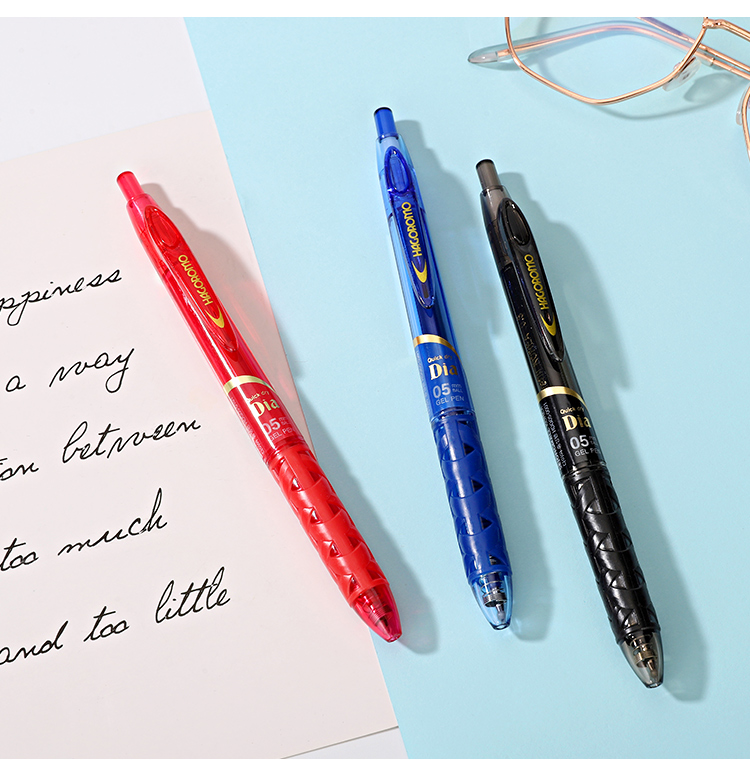 ppiness
a way
on between
too much
and too little
HAGOROMO
Quick dry
Dia
05
GEL PEN
HAGOROMO
Quick dry
Dia
05
GEL PEN
HAGOROMO
Quick dry
Dia
05
GEL PEN